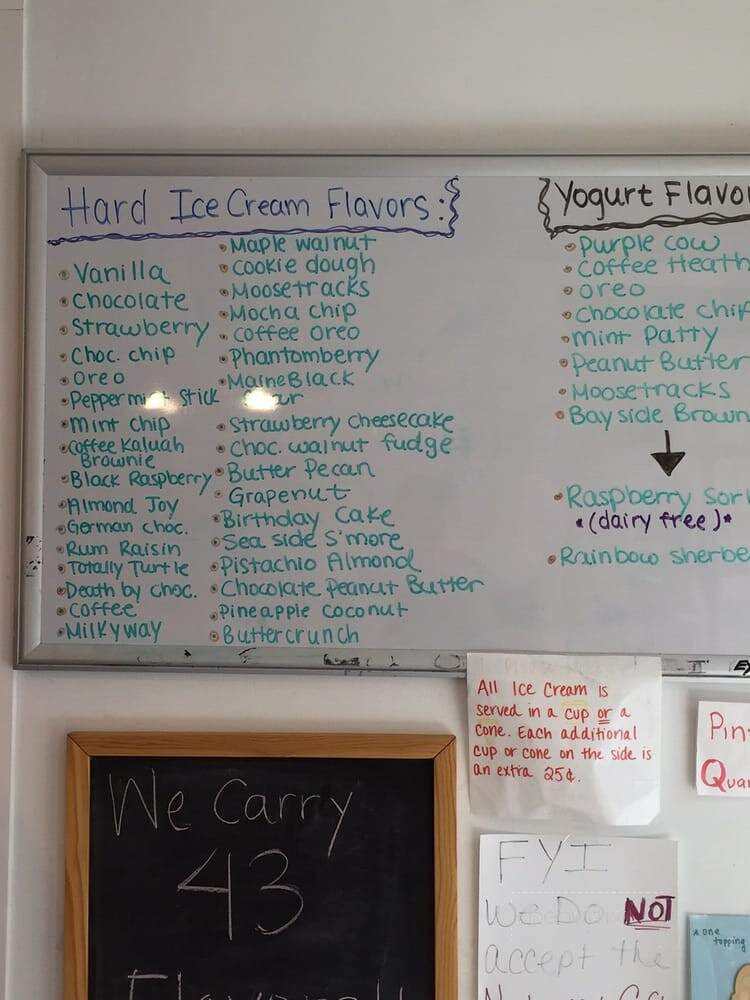 Hard Ice Cream Flavors:
Vanilla
Chocolate
Strawberry
Choc. chip
Oreo
Peppermint Stick
mint chip
Coffee Kaluah
Brownie
Black Raspberry
Almond Joy
German choc.
Rum Raisin
Totally Turtle
Death by choc.
Coffee
Milkyway
Maple walnut
Cookie dough
Moosetracks
Mocha chip
Coffee oreo
Phantomberry
Maine Black
Strawberry cheesecake
Choc. walnut fudge
Butter Pecan
Grapenut
Birthday Cake
Sea side S'more
Pistachio Almond
Chocolate Peanut Butter
Pineapple coconut
Buttercrunch
Yogurt Flavo
Purple cow
Coffee Heath
oreo
chocolate chip
mint Patty
Peanut Butter
Moosetracks
Bayside Brown
Raspberry Sor
*(dairy free)*
Rainbow sherbe
All Ice Cream is
served in a cup or a
cone. Each additional
cup or cone on the side is
an extra 25¢.
Pin
Quar
We Carry
43
FYI
We Do NOT
accept the
* one
topping